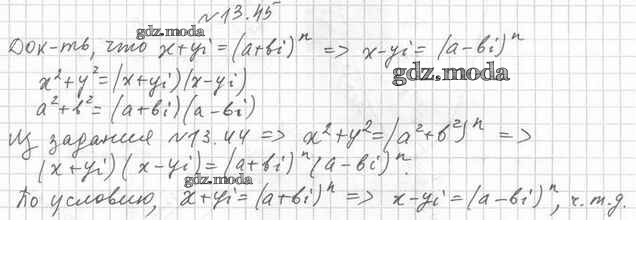 №13.45
gdz.moda
Док-ть, что x+yi=(a+bi)^n => x-yi=(a-bi)^n
x²+y²=(x+yi)(x-yi)
gdz.moda
a²+b²=(a+bi)(a-bi)
Из задания №13.44 => x²+y²=(a²+b²)^n =>
(x+yi)(x-yi)=(a+bi)^n(a-bi)^n.
gdz.moda
По условию, x+yi=(a+bi)^n => x-yi=(a-bi)^n, ч.т.д.